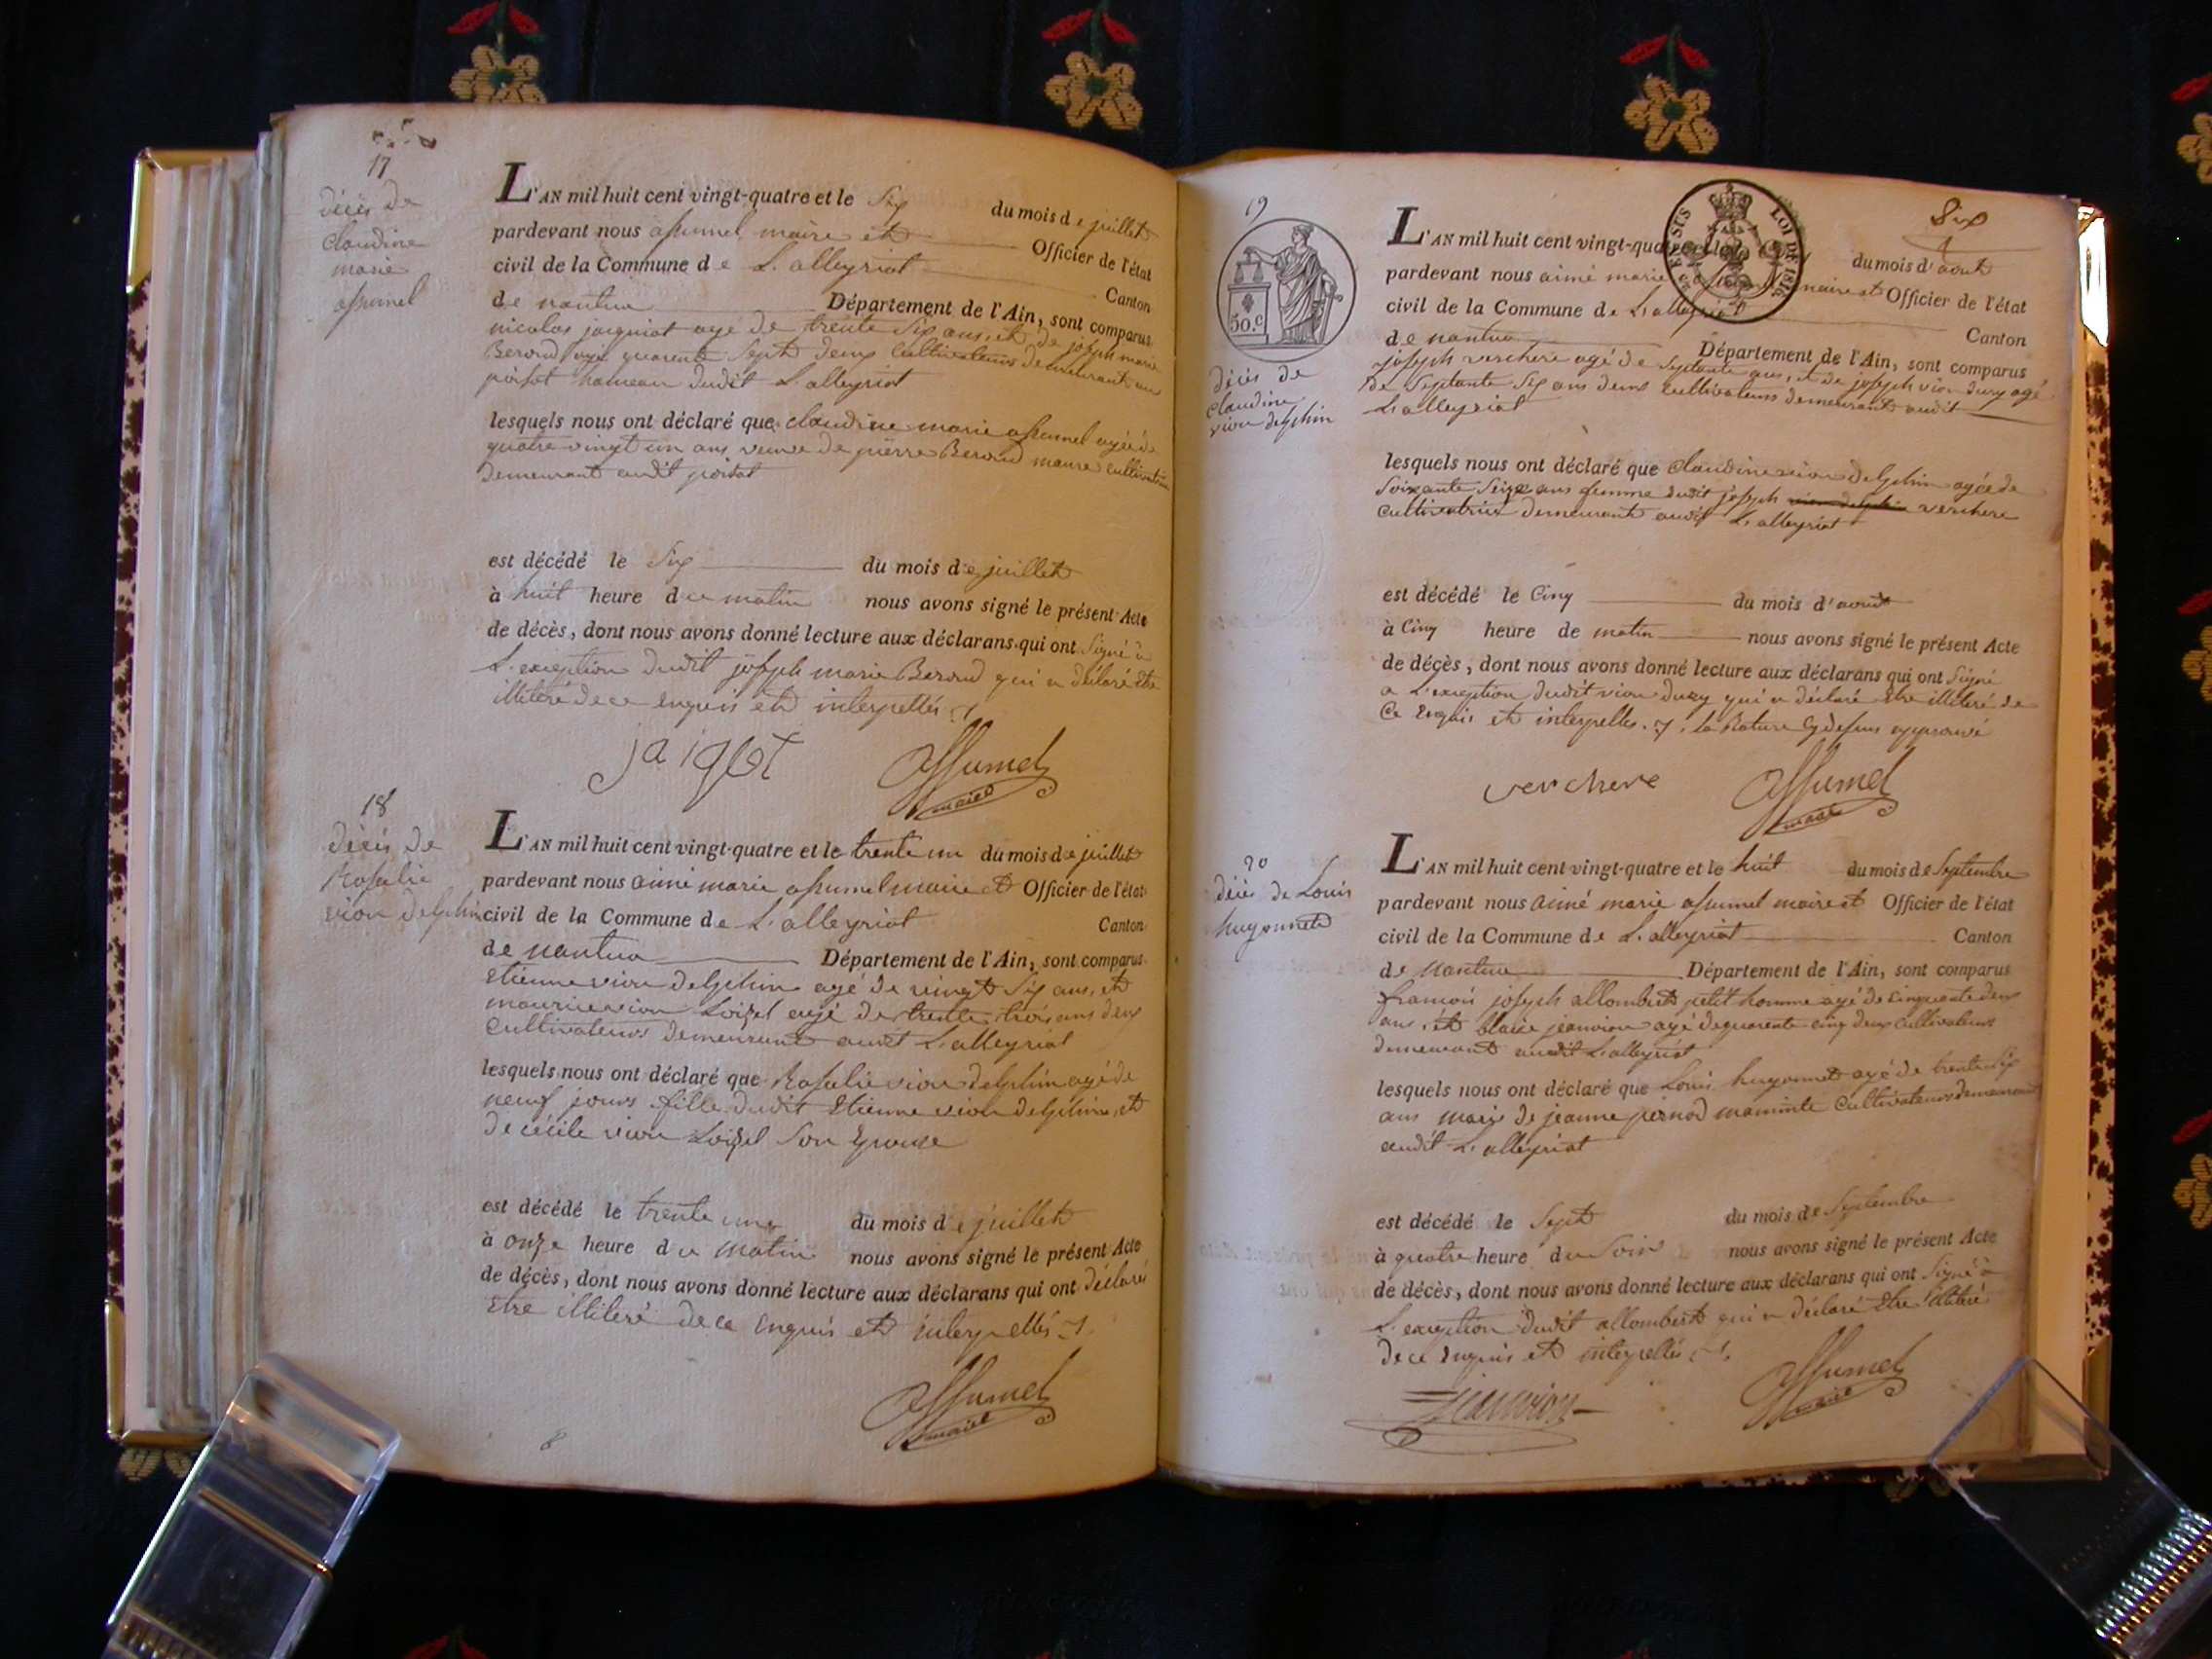 17
décès de
claudine
marie
assumel
L'AN mil huit cent vingt-quatre et le Six du mois de juillet
pardevant nous assumel maire et Officier de l'état
civil de la Commune de L'alleyriat Canton
de nantua Département de l'Ain, sont comparus
nicolas jacquiot agé de trente Six ans, et de joseph marie
Beroud agé quarente Sept deux Cultivateurs demeurant au
poisat hameau dudit L'alleyriat
lesquels nous ont déclaré que claudine marie assumel agée de
quatre vingt un ans veuve de pierre Beroud maure cultivatrice
demeurant audit poisat
est décédé le Six du mois de juillet
à huit heure du matin nous avons signé le présent Acte
de décès, dont nous avons donné lecture aux déclarans qui ont Signé à
L'exception dudit joseph marie Beroud qui a déclaré Etre
illiteré de ce enquis et interpellés
Assumel
maire
18
décès de
Rosalie
vion delphin
L'AN mil huit cent vingt-quatre et le trente un du mois de juillet
pardevant nous aimé marie assumel maire et Officier de l'état
civil de la Commune de L'alleyriat Canton
de nantua Département de l'Ain, sont comparus
Etienne vion delphin agé de vingt Six ans, et
maurice vion Loizel agé de trente trois ans deux
Cultivateurs demeurant audit L'alleyriat
lesquels nous ont déclaré que Rosalie vion delphin agé de
neuf jours fille dudit Etienne vion delphin, et
de cécile vion Loizel Son Epouse
est décédé le trente un du mois de juillet
à onze heure du matin nous avons signé le présent Acte
de décès, dont nous avons donné lecture aux déclarans qui ont déclaré
Etre illiteré de ce enquis et interpellés
Assumel
maire
8
19
50.C
décès de
claudine
vion delphin
EN SUS
LOI DE 1816
Six
L'AN mil huit cent vingt-quatre et le du mois d'août
pardevant nous aimé marie assumel maire et Officier de l'état
civil de la Commune de L'alleyriat Canton
de nantua Département de l'Ain, sont comparus
joseph verchere agé de Septante ans, et de joseph vion duzy agé
de Septante Six ans deux cultivateurs demeurant audit
L'alleyriat
lesquels nous ont déclaré que claudine vion delphin agée de
Soixante Seize ans femme dudit joseph vion delphin verchere
Cultivatrice demeurant audit L'alleyriat
est décédé le Cinq du mois d'août
à Cinq heure de matin nous avons signé le présent Acte
de décès, dont nous avons donné lecture aux déclarans qui ont Signé
a L'exception dudit vion duzy qui a déclaré Etre illiteré de
Ce Enquis et interpelles. la Rature Cy dessus approuvé
verchere
Assumel
maire
20
décès de Louis
hugonnet
L'AN mil huit cent vingt-quatre et le huit du mois de Septembre
pardevant nous aimé marie assumel maire et Officier de l'état
civil de la Commune de L'alleyriat Canton
de Nantua Département de l'Ain, sont comparus
françois joseph allombert petit homme agé de cinquante deux
ans, et blaise jeanvion agé de quarente cinq deux Cultivateurs
demeurant audit L'alleyriat
lesquels nous ont déclaré que Louis hugonnet agé de trente Six
ans marie de jeanne pernod maminte Cultivateurs demeurant
audit L'alleyriat
est décédé le Sept du mois de Septembre
à quatre heure du Soir nous avons signé le présent Acte
de décès, dont nous avons donné lecture aux déclarans qui ont Signé à
L'exception dudit allombert qui a déclaré Etre illiteré
de ce Enquis et interpellés
Jeanvion
Assumel
maire